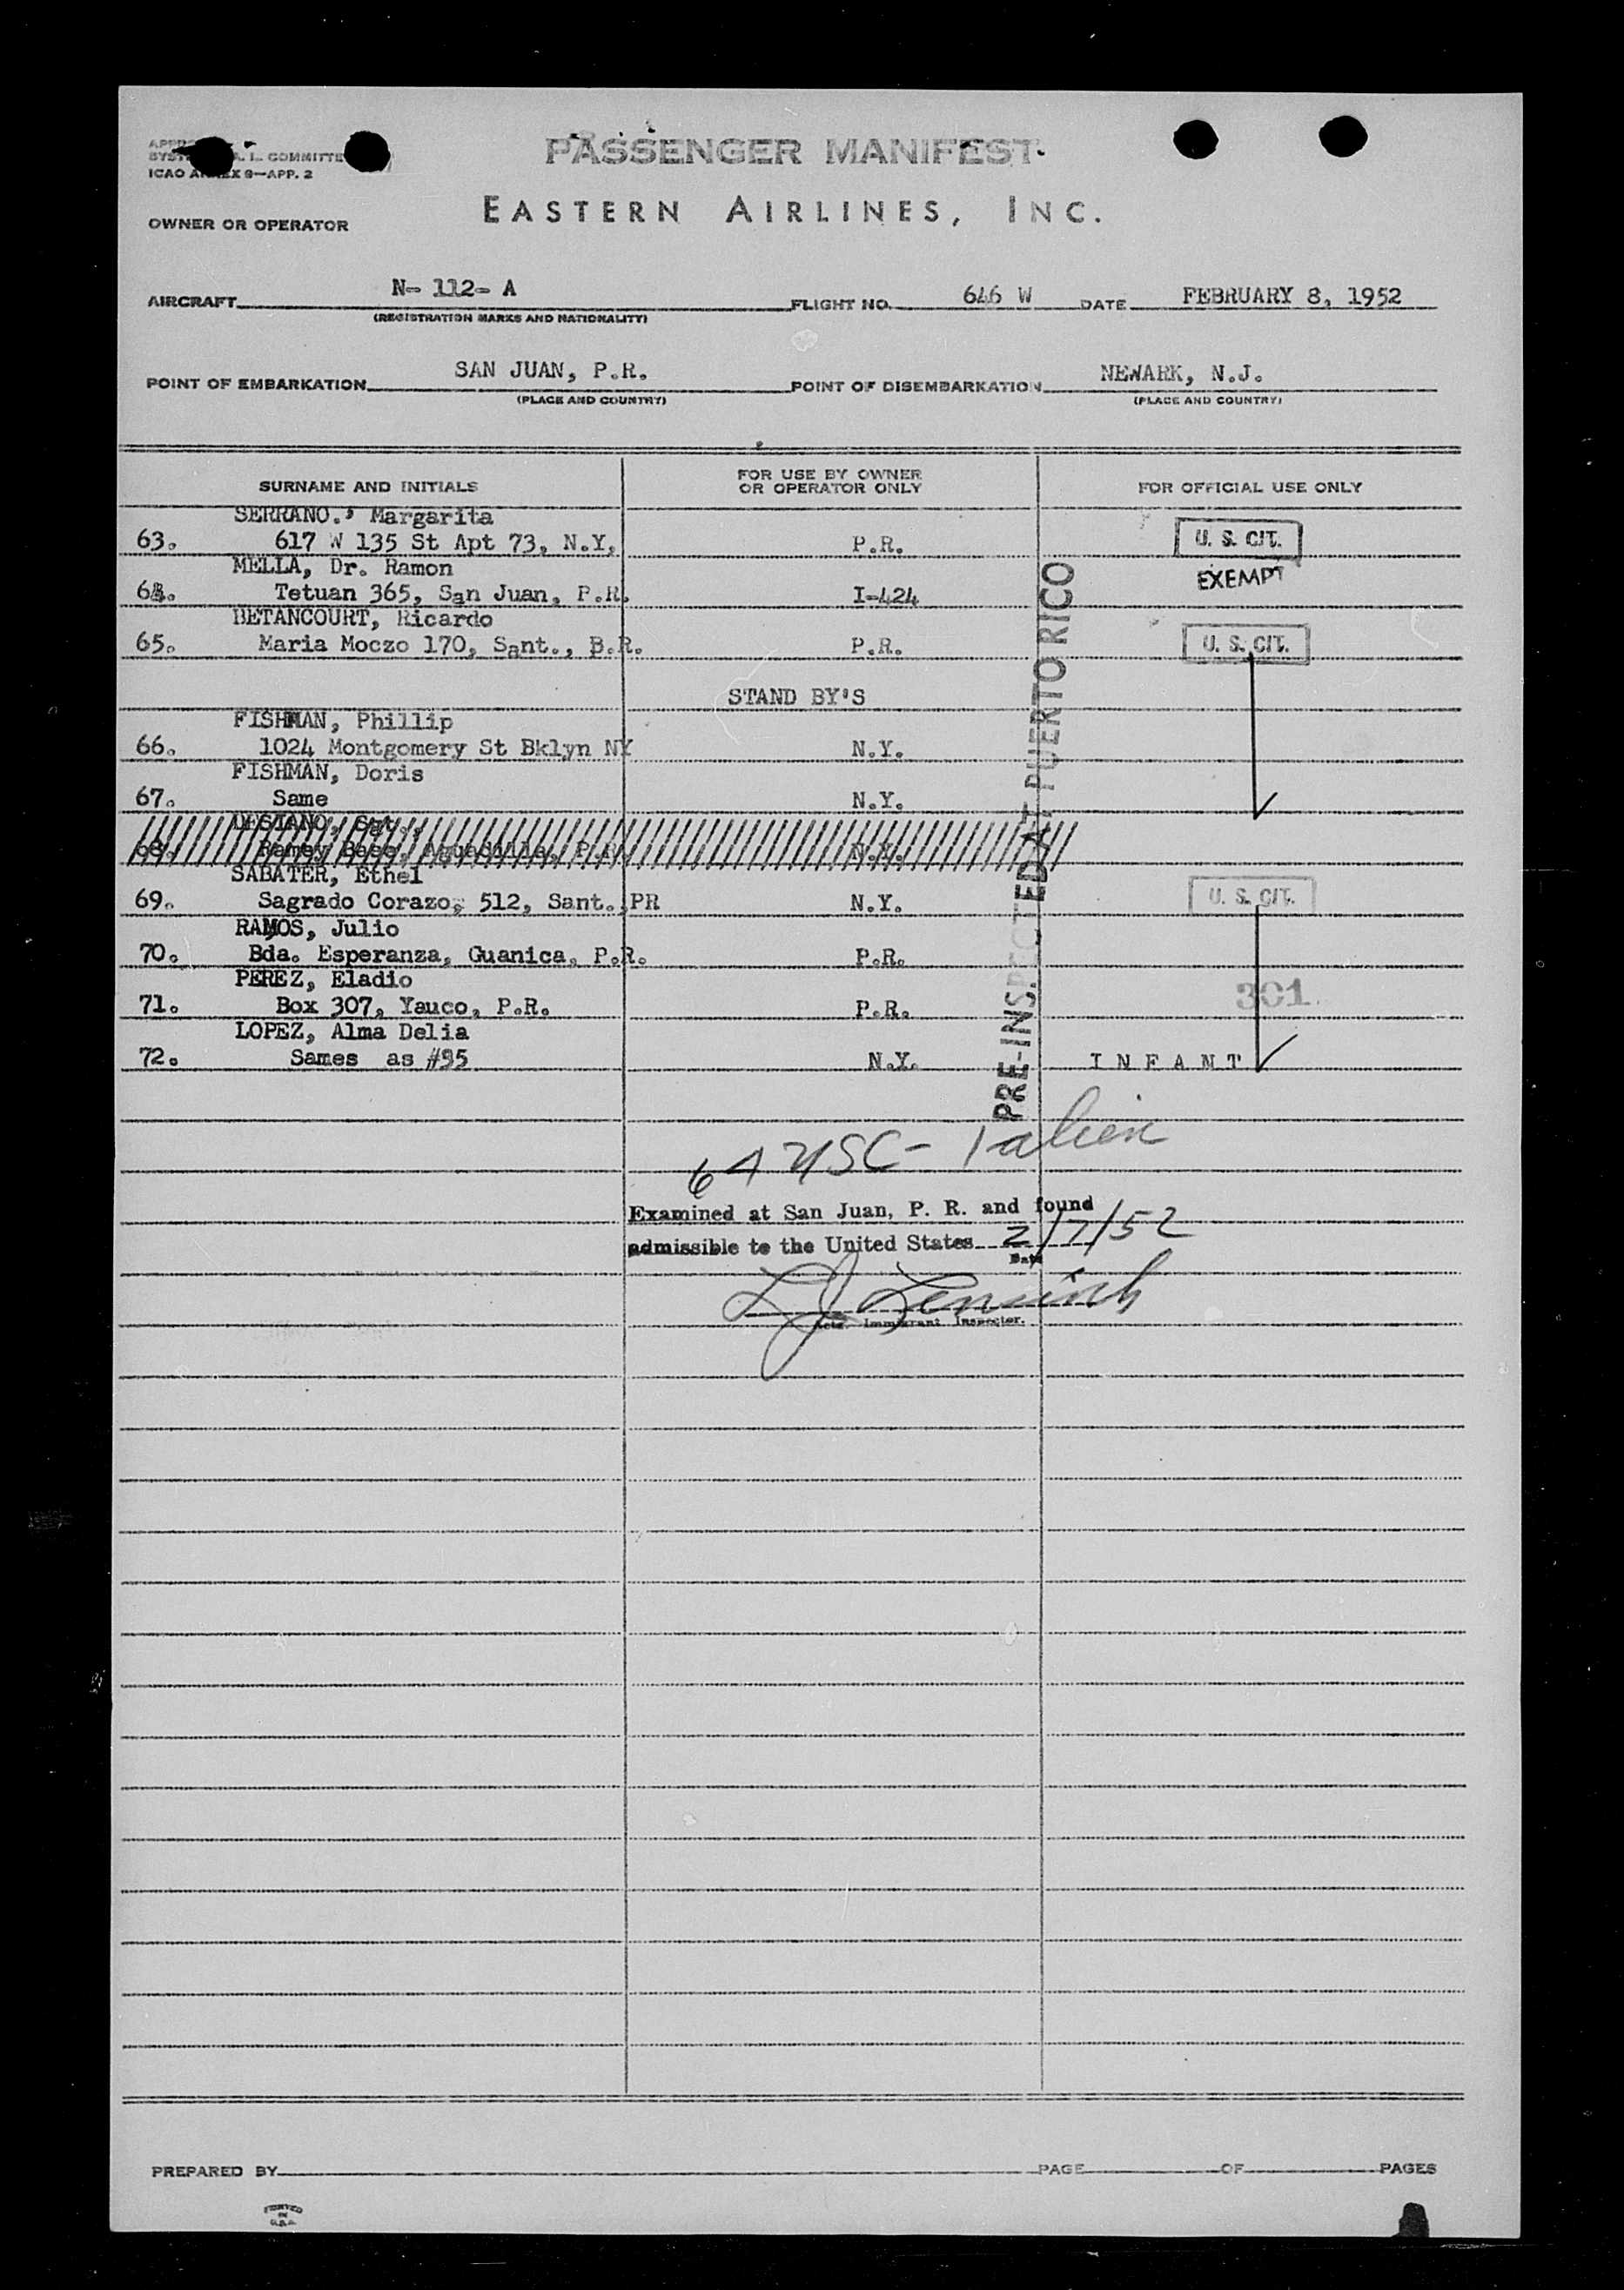 PASSENGER MANIFEST
SYST A. L. COMMITTE
ICAO ANNEX 9—APP. 2
EASTERN AIRLINES, INC.
OWNER OR OPERATOR
AIRCRAFT N- 112- A FLIGHT NO. 646 W DATE FEBRUARY 8, 1952
(REGISTRATION MARKS AND NATIONALITY)
POINT OF EMBARKATION SAN JUAN, P.R. POINT OF DISEMBARKATION NEWARK, N.J.
(PLACE AND COUNTRY) (PLACE AND COUNTRY)
SURNAME AND INITIALS FOR USE BY OWNER OR OPERATOR ONLY FOR OFFICIAL USE ONLY
SERRANO., Margarita
63. 617 W 135 St Apt 73, N.Y, P.R. U. S. CIT.
MELLA, Dr. Ramon EXEMPT
64. Tetuan 365, San Juan, P.R. I-424
BETANCOURT, Ricardo
65. Maria Moczo 170, Sant., B.R. P.R. U. S. CIT.
STAND BY'S
FISHMAN, Phillip
66. 1024 Montgomery St Bklyn NY N.Y.
FISHMAN, Doris
67. Same N.Y.
DESIANO, Sgt.,
68. Ramey Base, Aguadilla, P.R. N.Y.
SABATER, Ethel
69. Sagrado Corazo, 512, Sant.,PR N.Y. U. S. CIT.
RAMOS, Julio
70. Bda. Esperanza, Guanica, P.R. P.R.
PEREZ, Eladio
71. Box 307, Yauco, P.R. P.R. 301
LOPEZ, Alma Delia
72. Sames as #95 N.Y. I N F A N T
PRE-INSPECTED AT PUERTO RICO
64 USC- 1 alien
Examined at San Juan, P. R. and found
admissible to the United States 2/7/52
Date
Immigrant Inspector.
PREPARED BY PAGE OF PAGES
PRINTED
IN
U.S.A.